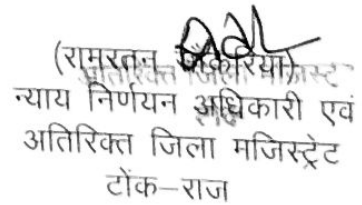 (रामरतन
न्याय निर्णयन अधिकारी एवं
अतिरिक्त जिला मजिस्ट्रेट
टोंक–राज